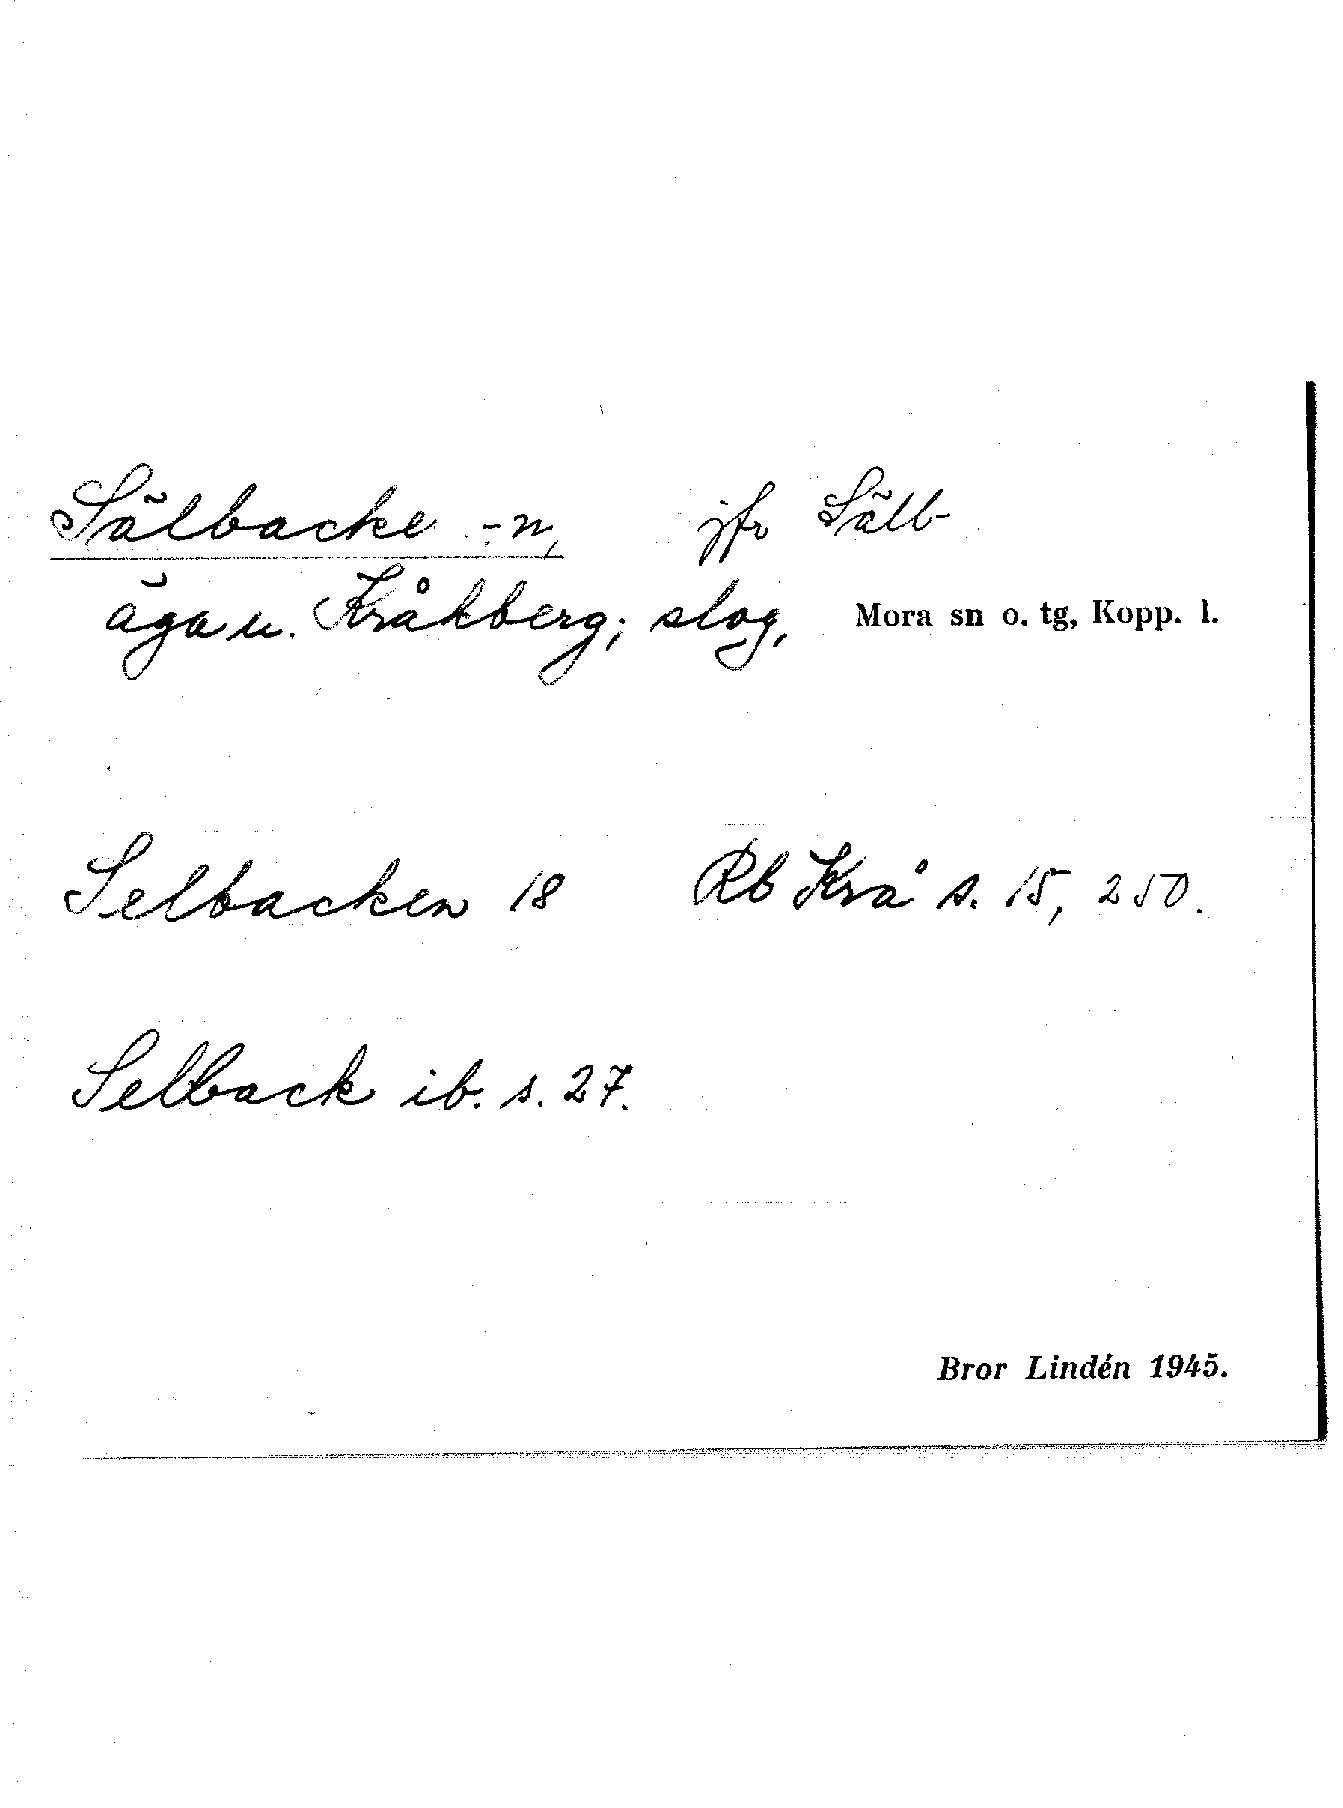 Sälbacke -n,   jfr Sälb-
äga u. Kråkberg; slog,   Mora sn o. tg, Kopp. l.
Selbacken 18   Rb Krå s. 15, 250.
Selback ib. s. 27.
Bror Lindén 1945.